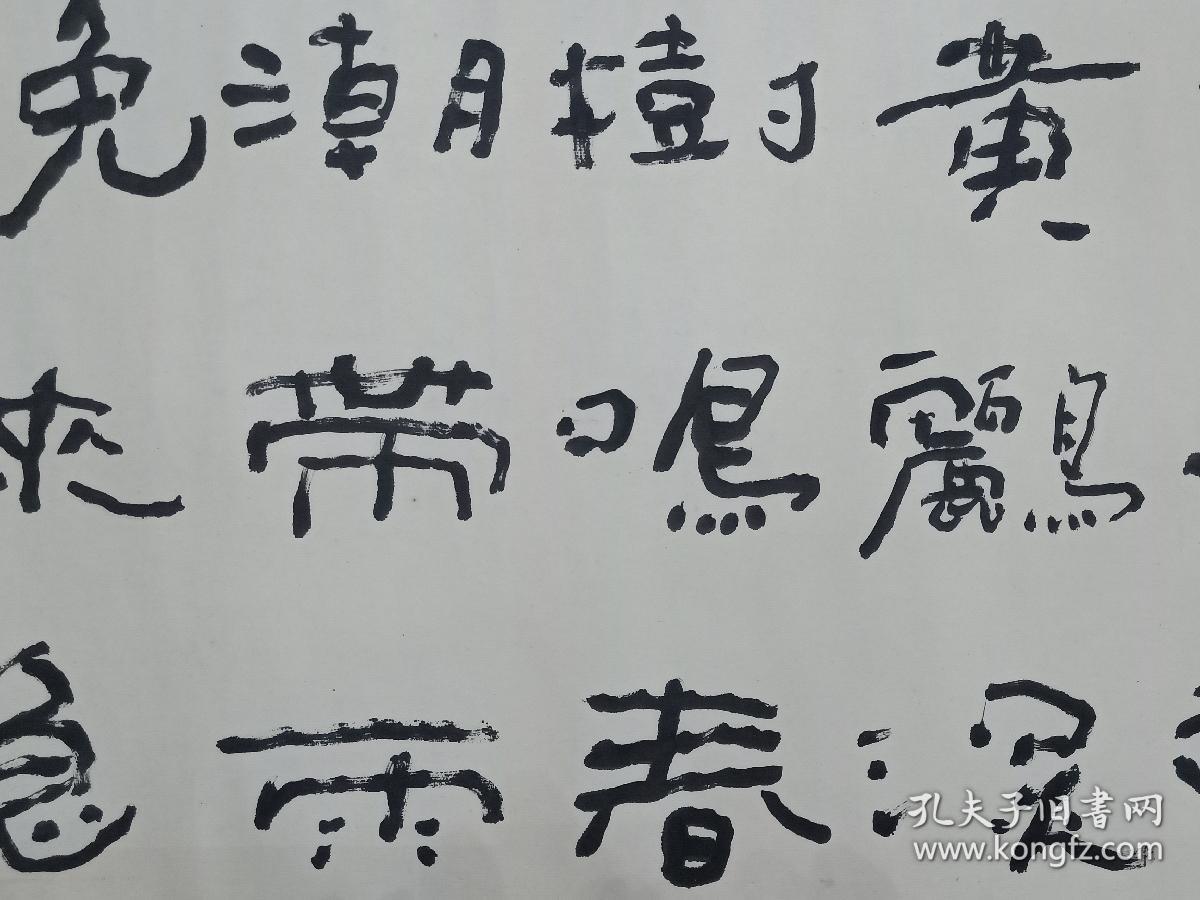 黄鸝深
樹鳴春
潮帶雨
晚來急
孔夫子旧書网
www.kongfz.com